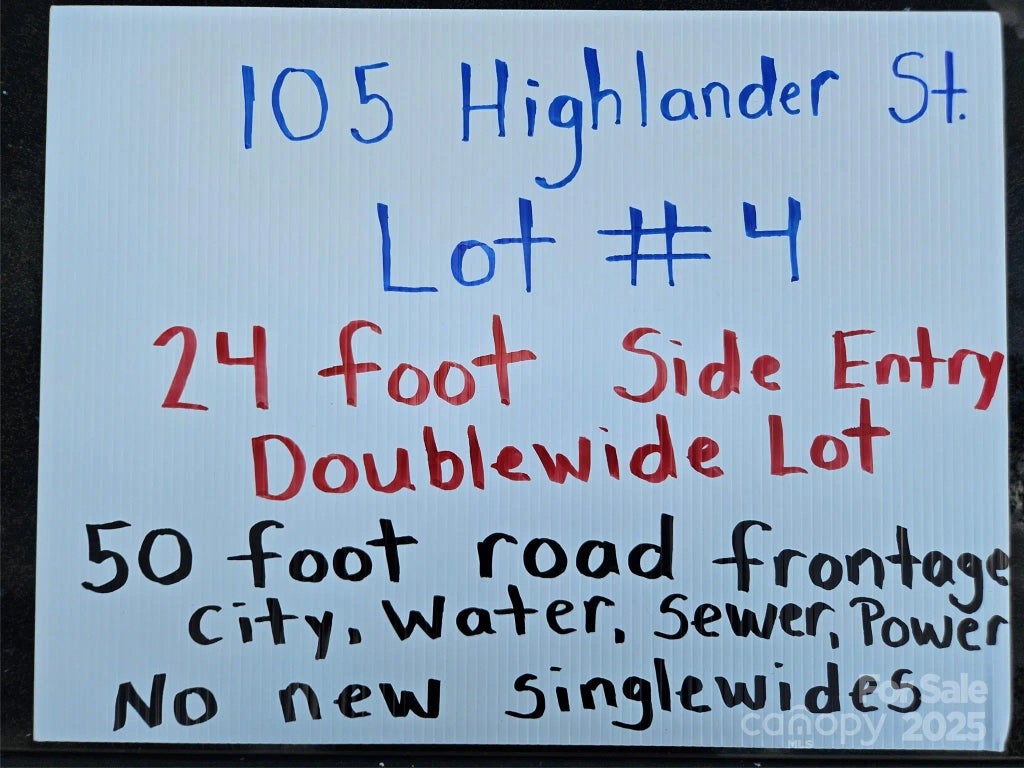 105 Highlander St.
Lot # 4
24 foot Side Entry
Doublewide Lot
50 foot road frontage
City, Water, Sewer, Power
No new singlewides
For Sale
canopy 2025
MLS